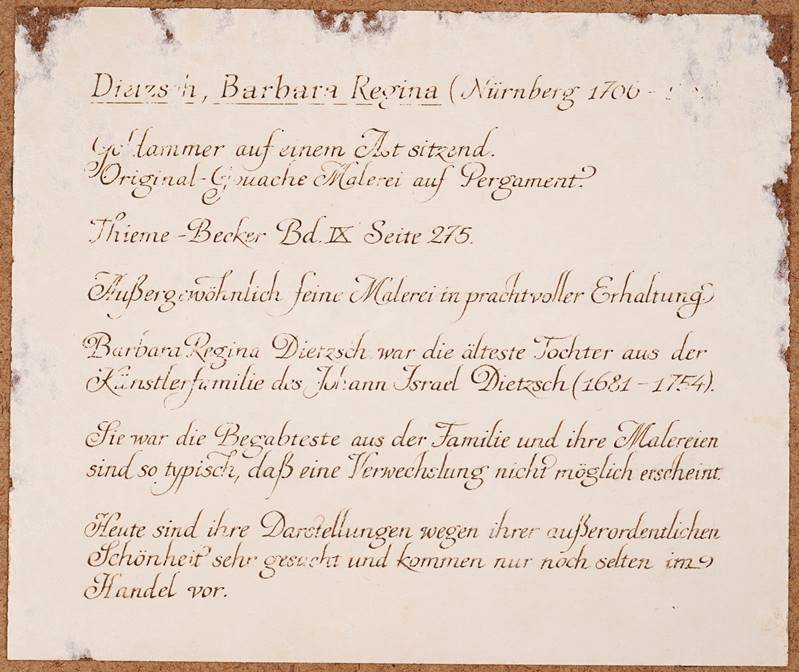 Dietzsch, Barbara Regina (Nürnberg 1706 -
Goldammer auf einem Ast sitzend.
Original-Gouache Malerei auf Pergament.
Thieme-Becker Bd. IX Seite 275.
Außergewöhnlich feine Malerei in prachtvoller Erhaltung
Barbara Regina Dietzsch war die älteste Tochter aus der
Künstlerfamilie des Johann Israel Dietzsch (1681 - 1754).
Sie war die Begabteste aus der Familie und ihre Malereien
sind so typisch, daß eine Verwechslung nicht möglich erscheint.
Heute sind ihre Darstellungen wegen ihrer außerordentlichen
Schönheit sehr gesucht und kommen nur noch selten im
Handel vor.